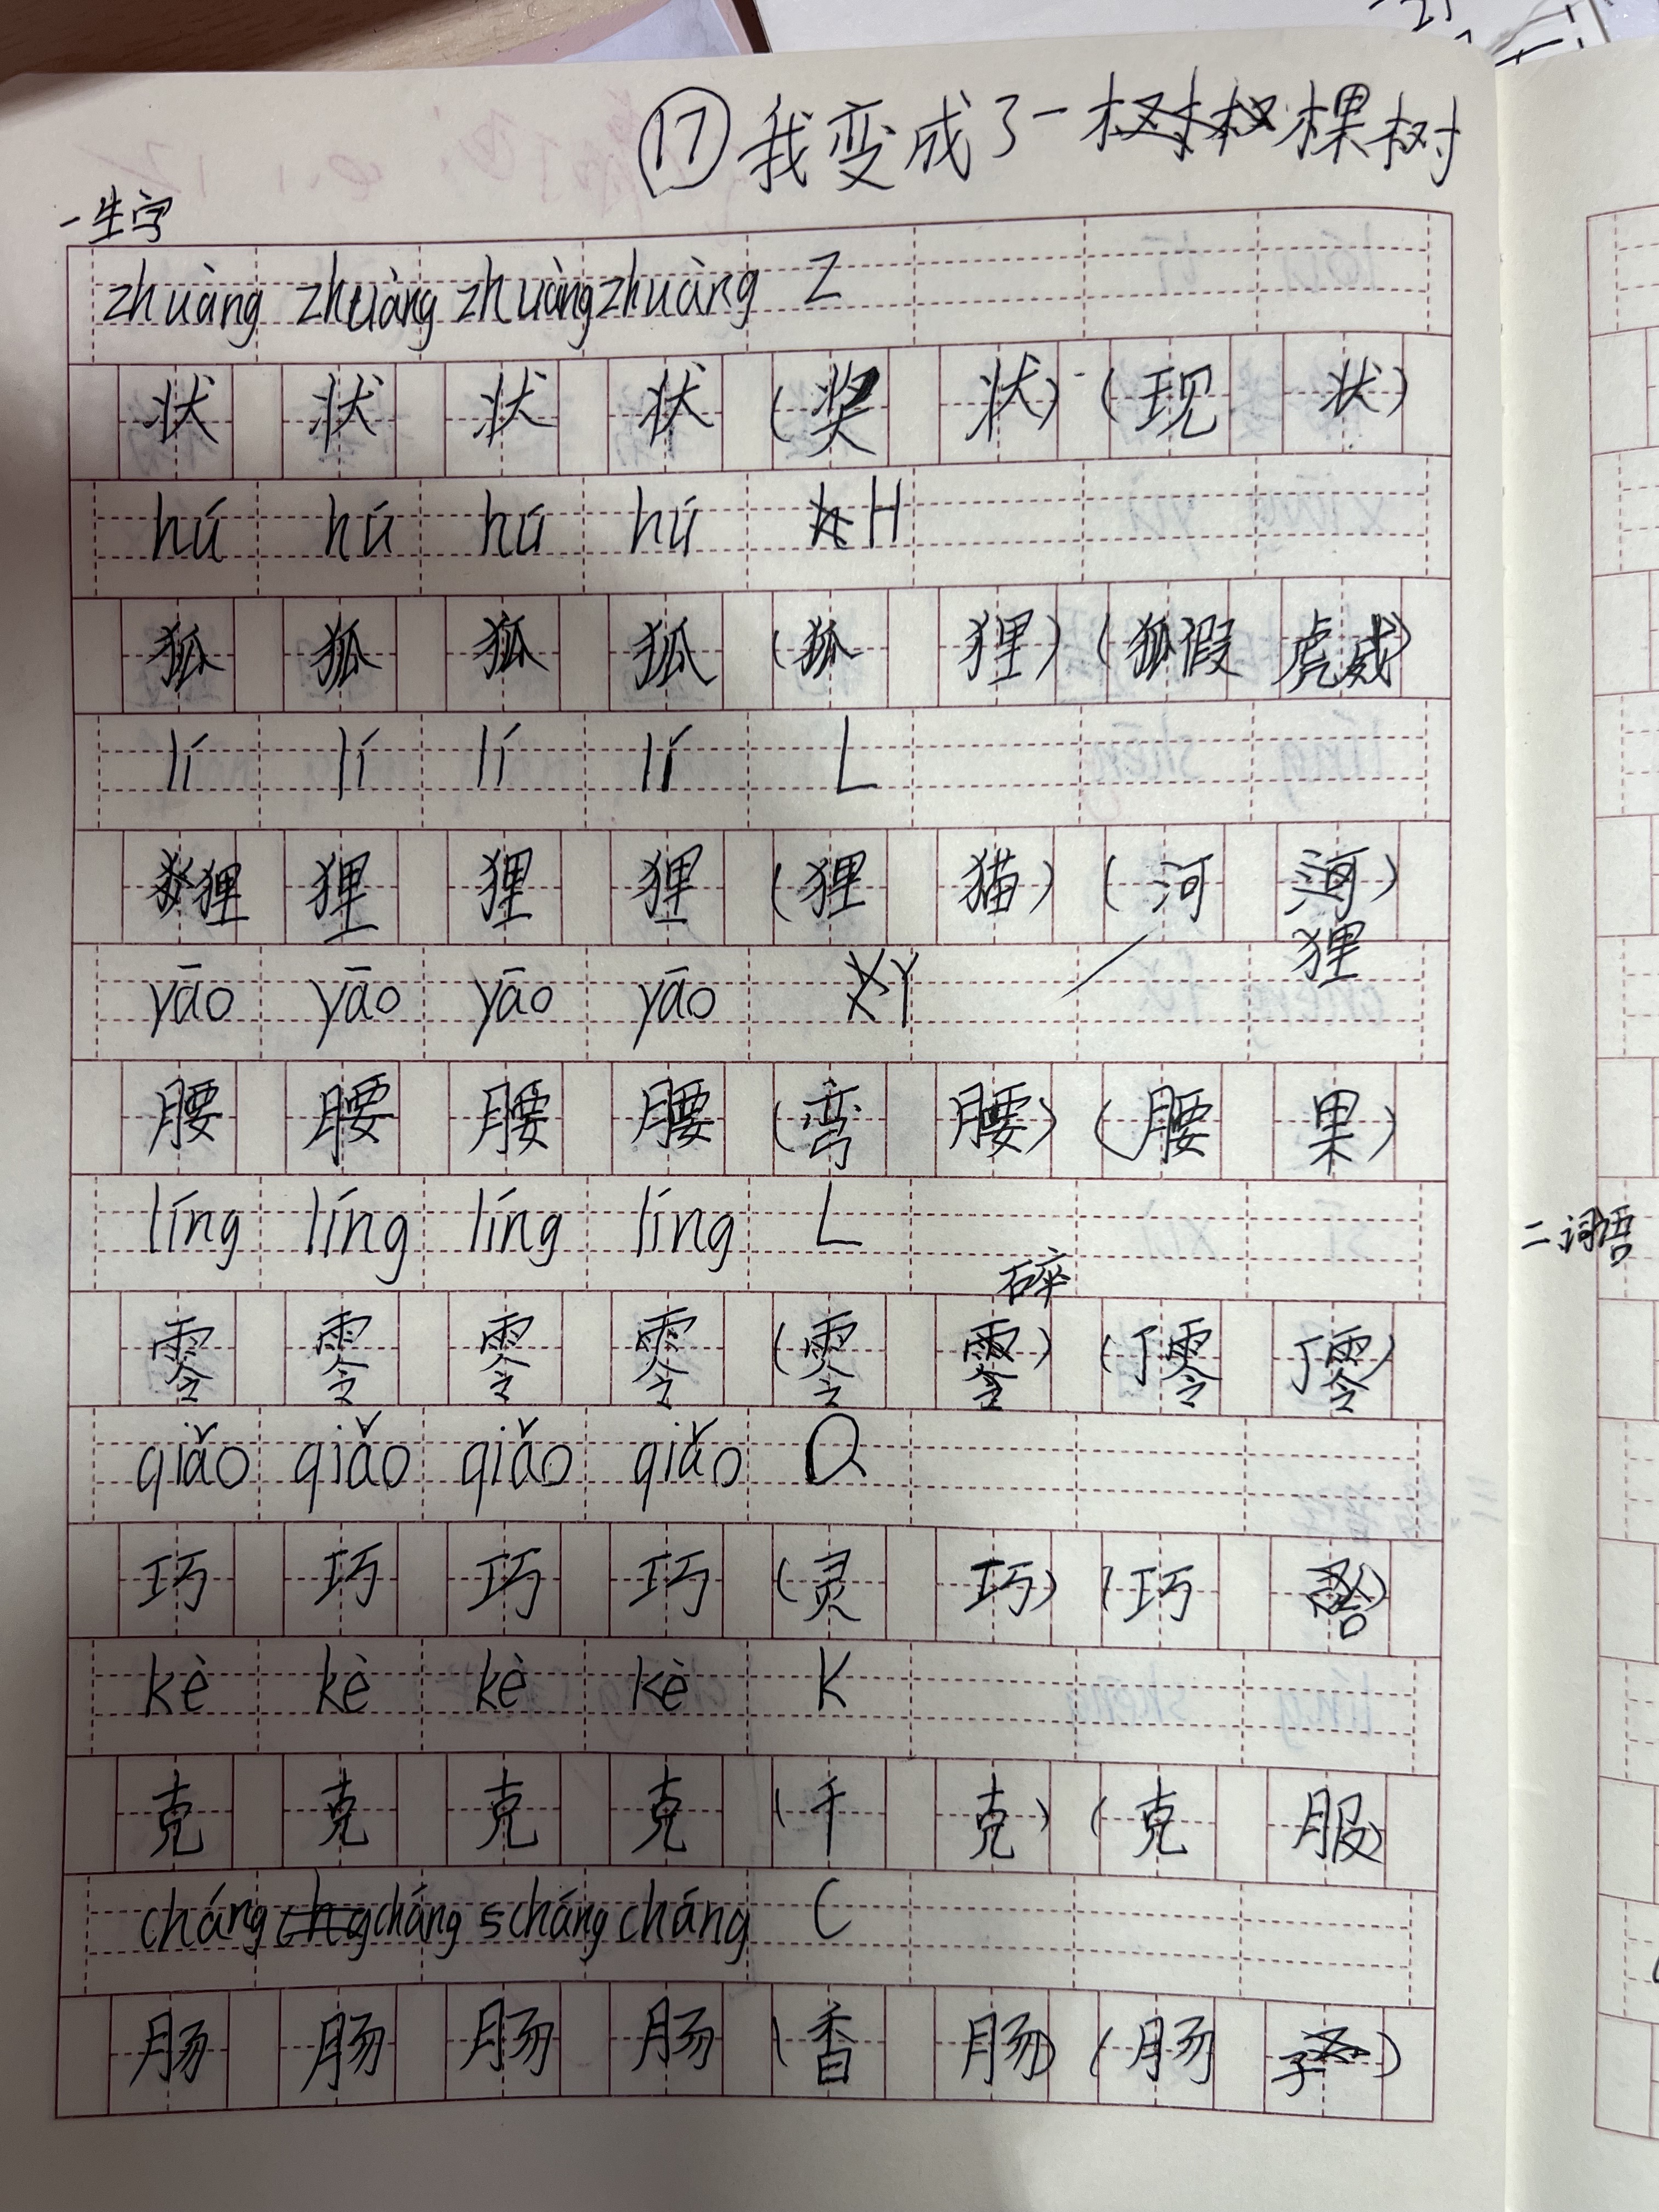 ⑰我变成了一棵树
一生字
zhuàng zhuàng zhuàng zhuàng Z
状 状 状 状 (奖 状) (现 状)
hú hú hú hú H
狐 狐 狐 狐 (狐 狸) (狐假 虎威)
lí lí lí lí L
狸 狸 狸 狸 (狸 猫) (河 狸)
yāo yāo yāo yāo Y
腰 腰 腰 腰 (弯 腰) (腰 果)
líng líng líng líng L
零 零 零 零 (零 碎) (丁零 丁零)
qiǎo qiǎo qiǎo qiǎo Q
巧 巧 巧 巧 (灵 巧) (巧 )
kè kè kè kè K
克 克 克 克 (千 克) (克 服)
cháng cháng cháng cháng C
肠 肠 肠 肠 (香 肠) (肠 子)
二词语